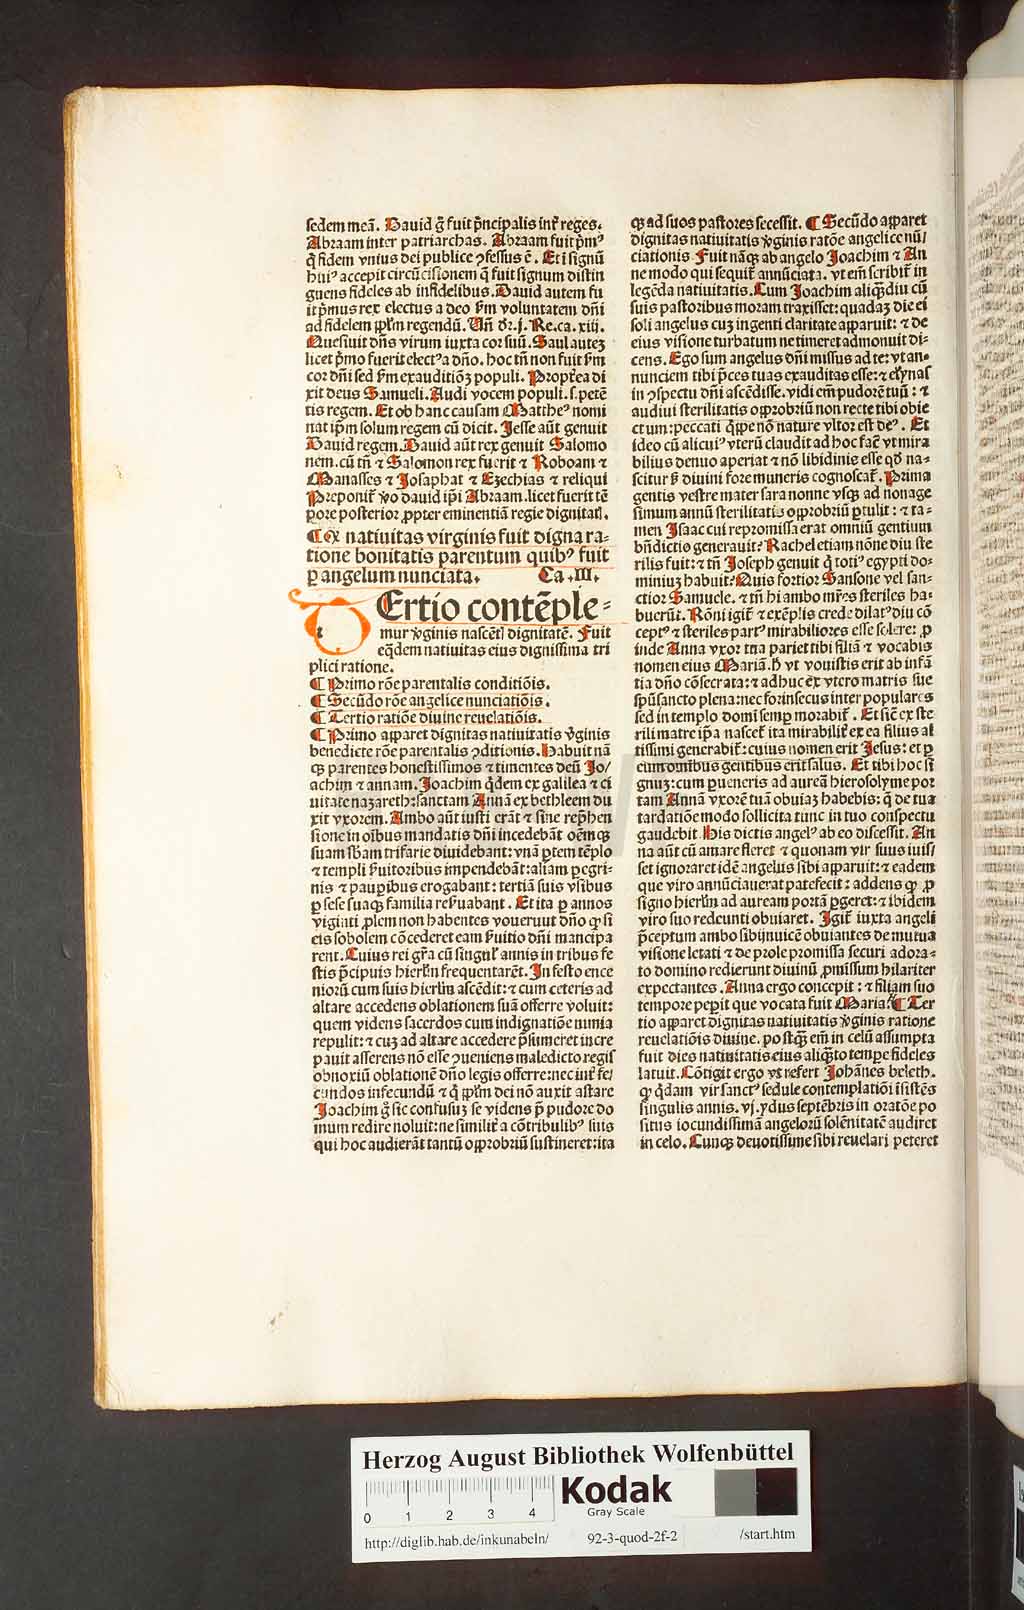 sedem meā. Dauid g̃ fuit p̄ncipalis int̄ reges.
Abraam inter patriarchas. Abraam fuit pm̄ꝰ
q̄ fidem vnius dei publice ꝯfessus ē. Et ī signū
huiꝰ accepit circūcisionem q̄ fuit signum distin
guens fideles ab infidelibus. Dauid autem fu
it p̄mus rex electus a deo ẜm voluntatem dn̄i
ad fidelem pp̄lm regendū. Vn̄ dr̄. j. Re. ca. xiij.
Quesiuit dn̄s virum iuxta cor suū. Saul autez
licet p̄mo fuerit electꝰ a dn̄o. hoc tn̄ non fuit ẜm
cor dn̄i sed ẜm exauditiōꝫ populi. Propt̄ea di
xit deus Samueli. Audi vocem populi. s. petē
tis regem. Et ob hanc causam Mattheꝰ nomi
nat ip̄m solum regem cū dicit. Jesse aūt genuit
Dauid regem. Dauid aūt rex genuit Salomo
nem. cū tn̄ ⁊ Salomon rex fuerit ⁊ Roboam ⁊
Manasses ⁊ Josaphat ⁊ Ezechias ⁊ reliqui
Preponit̄ v̄o dauid ip̄i Abraam. licet fuerit tē
pore posterior ꝓpter eminentiā regie dignitat̄.
¶ Qꝫ natiuitas virginis fuit digna ra-
tione bonitatis parentum quibꝰ fuit
ꝑ angelum nunciata. Ca. III.
TErtio contēple-
mur v̄ginis nascēt̄ dignitatē. Fuit
eq̄dem natiuitas eius dignissima tri
plici ratione.
¶ Primo rōe parentalis conditiōis.
¶ Secūdo rōe angelice nunciatiōis.
¶ Tertio ratiōe diuine reuelatiōis.
¶ Primo apparet dignitas natiuitatis v̄ginis
benedicte rōe parentalis ꝯditionis. Habuit nā
qꝫ parentes honestissimos ⁊ timentes deū Jo/
achim ⁊ annam. Joachim q̄dem ex galilea ⁊ ci
uitate nazareth: sanctam Annā ex bethleem du
xit vxorem. Ambo aūt iusti erāt ⁊ sine rep̄hen
sione in oībus mandatis dn̄i incedebāt oēmqꝫ
suam sb̄am trifarie diuidebant: vnā ꝑtem tēplo
⁊ templi ẜuitoribus impendebāt: aliam ꝑegri-
nis ⁊ pauꝑibus erogabant: tertiā suis vsibus
ꝑ sese suaqꝫ familia reẜuabant. Et ita ꝑ annos
viginti ꝓlem non habentes vouerunt dn̄o ꝙ si
eis sobolem cōcederet eam ẜuitio dn̄i mancipa
rent. Cuius rei gr̄a cū singul̄ annis in tribus fe
stis p̄cipuis hierlm̄ frequentarēt. In festo ence
niorū cum suis hierlm̄ ascēdit: ⁊ cum ceteris ad
altare accedens oblationem suā offerre voluit:
quem videns sacerdos cum indignatiōe nimia
repulit: ⁊ cuꝫ ad altare accedere p̄sumeret incre
pauit asserens nō esse ꝯueniens maledicto legis
obnoxiū oblationē dn̄o legis offerre: nec int̄ fe/
cundos infecundū ⁊ q̄ pp̄lm dei nō auxit astare
Joachim g̃ sic confusuꝫ se videns p̄ pudore do
mum redire noluit: ne similit̄ a cōtribulibꝰ suis
qui hoc audierāt tantū opprobriū sustineret: ita
qꝫ ad suos pastores secessit. ¶ Secūdo apparet
dignitas natiuitatis v̄ginis ratōe angelice nū/
ciationis Fuit nāqꝫ ab angelo Joachim ⁊ An
ne modo qui sequit̄ annūciata. vt em̄ scribit̄ in
legēda natiuitatis. Cum Joachim aliqꝫdiu cū
suis pastoribus moram traxisset: quadaꝫ die ei
soli angelus cuꝫ ingenti claritate apparuit: ⁊ de
eius visione turbatum ne timeret admonuit di-
cens. Ego sum angelus dn̄i missus ad te: vt an-
nunciem tibi p̄ces tuas exauditas esse: ⁊ elynas
in ꝯspectu dn̄i ascēdisse. vidi em̄ pudorē tuū: ⁊
audiui sterilitatis opprobriū non recte tibi obie
ctum: peccati q̄ppe nō nature vltor est deꝰ. Et
ideo cū alicuiꝰ vterū claudit ad hoc fac̄ vt mira
bilius denuo aperiat ⁊ nō libidinis esse qd̄ na-
scitur ẜ diuini fore muneris cognoscat̄. Prima
gentis vestre mater sara nonne vsqꝫ ad nonage
simum annū sterilitatis opprobriū ꝑtulit: ⁊ ta-
men Isaac cui repromissa erat omniū gentium
bn̄dictio generauit: Rachel etiam nōne diu ste
rilis fuit: ⁊ tn̄ Joseph genuit q̄ totiꝰ egypti do-
miniuꝫ habuit: Quis fortior Sansone vel san-
ctior Samuele. ⁊ tn̄ hi ambo mr̄es steriles ha-
buerūt. Rōni igit̄ ⁊ exēplis crede dilatꝰ diu cō
ceptꝰ ⁊ steriles partꝰ mirabiliores esse solere: ꝓ
inde Anna vxor tua pariet tibi filiā ⁊ vocabis
nomen eius Mariā. H̄ vt vouistis erit ab infā
tia dn̄o cōsecrata: ⁊ adhuc ex vtero matris sue
spūsancto plena: nec forinsecus inter populares
sed in templo domi semꝑ morabit̄. Et sic̄ ex ste
rili matre ip̄a nascet̄ ita mirabilit̄ ex ea filius al
tissimi generabit̄: cuius nomen erit Jesus: et ꝑ
eum omnibus gentibus erit salus. Et tibi hoc si
gnuꝫ: cum ꝑueneris ad aureā hierosolyme por
tam Annā vxorē tuā obuiaꝫ habebis: q̄ de tua
tardatiōe modo sollicita tunc in tuo conspectu
gaudebit. His dictis angelꝰ ab eo discessit. An
na aūt cū amare fleret ⁊ quonam vir suus iuis/
set ignoraret idē angelus sibi apparuit: ⁊ eadem
que viro annūciauerat patefecit: addens ꝙ ꝓ
signo hierlm̄ ad auream portā ꝑgeret: ⁊ ibidem
viro suo redeunti obuiaret. Igit̄ iuxta angeli
p̄ceptum ambo sibijnuicē obuiantes de mutua
visione letati ⁊ de prole promissa securi adora-
to domino redierunt diuinū ꝓmissum hilariter
expectantes. Anna ergo concepit: ⁊ filiam suo
tempore peꝑit que vocata fuit Maria. ¶ Ter
tio apparet dignitas natiuitatis v̄ginis ratione
reuelatiōis diuine. postqꝫ em̄ in celū assumpta
fuit dies natiuitatis eius aliqꝫto tempe fideles
latuit. Cōtigit ergo vt refert Johānes beleth.
ꝙ q̄dam vir sanctꝰ sedule contemplatiōi īsistēs
singulis annis. vj. ydus septēbris in oratōe po
situs iocundissimā angelorū solēnitatē audiret
in celo. Cunqꝫ deuotissime sibi reuelari peteret
Herzog August Bibliothek Wolfenbüttel
0 1 2 3 4
Kodak
Gray Scale
http://diglib.hab.de/inkunabeln/ 92-3-quod-2f-2 /start.htm